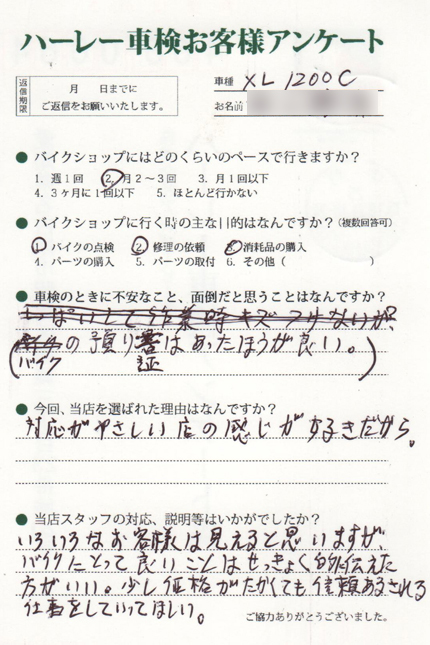 ハーレー車検お客様アンケート
返信期限
月 日までに
ご返信をお願いいたします。
車種 XL1200C
お名前
● バイクショップにはどのくらいのペースで行きますか？
1. 週1回 2. 月2～3回 3. 月1回以下
4. 3ヶ月に1回以下 5. ほとんど行かない
● バイクショップに行く時の主な目的はなんですか？（複数回答可）
1. バイクの点検 2. 修理の依頼 3. 消耗品の購入
4. パーツの購入 5. パーツの取付 6. その他（ ）
● 車検のときに不安なこと、面倒だと思うことはなんですか？
作業時キズつけないか、
（バイクの預り証はあったほうが良い。）
● 今回、当店を選ばれた理由はなんですか？
対応がやさしい店の感じがするきだから。
● 当店スタッフの対応、説明等はいかがでしたか？
いろいろなお客様は見えると思いますが、
バイクにとって良いことはせっきょく的伝えた
方がいい。少し価格がたかくても信頼あるされる
仕事をしていってほしい。
ご協力ありがとうございました。